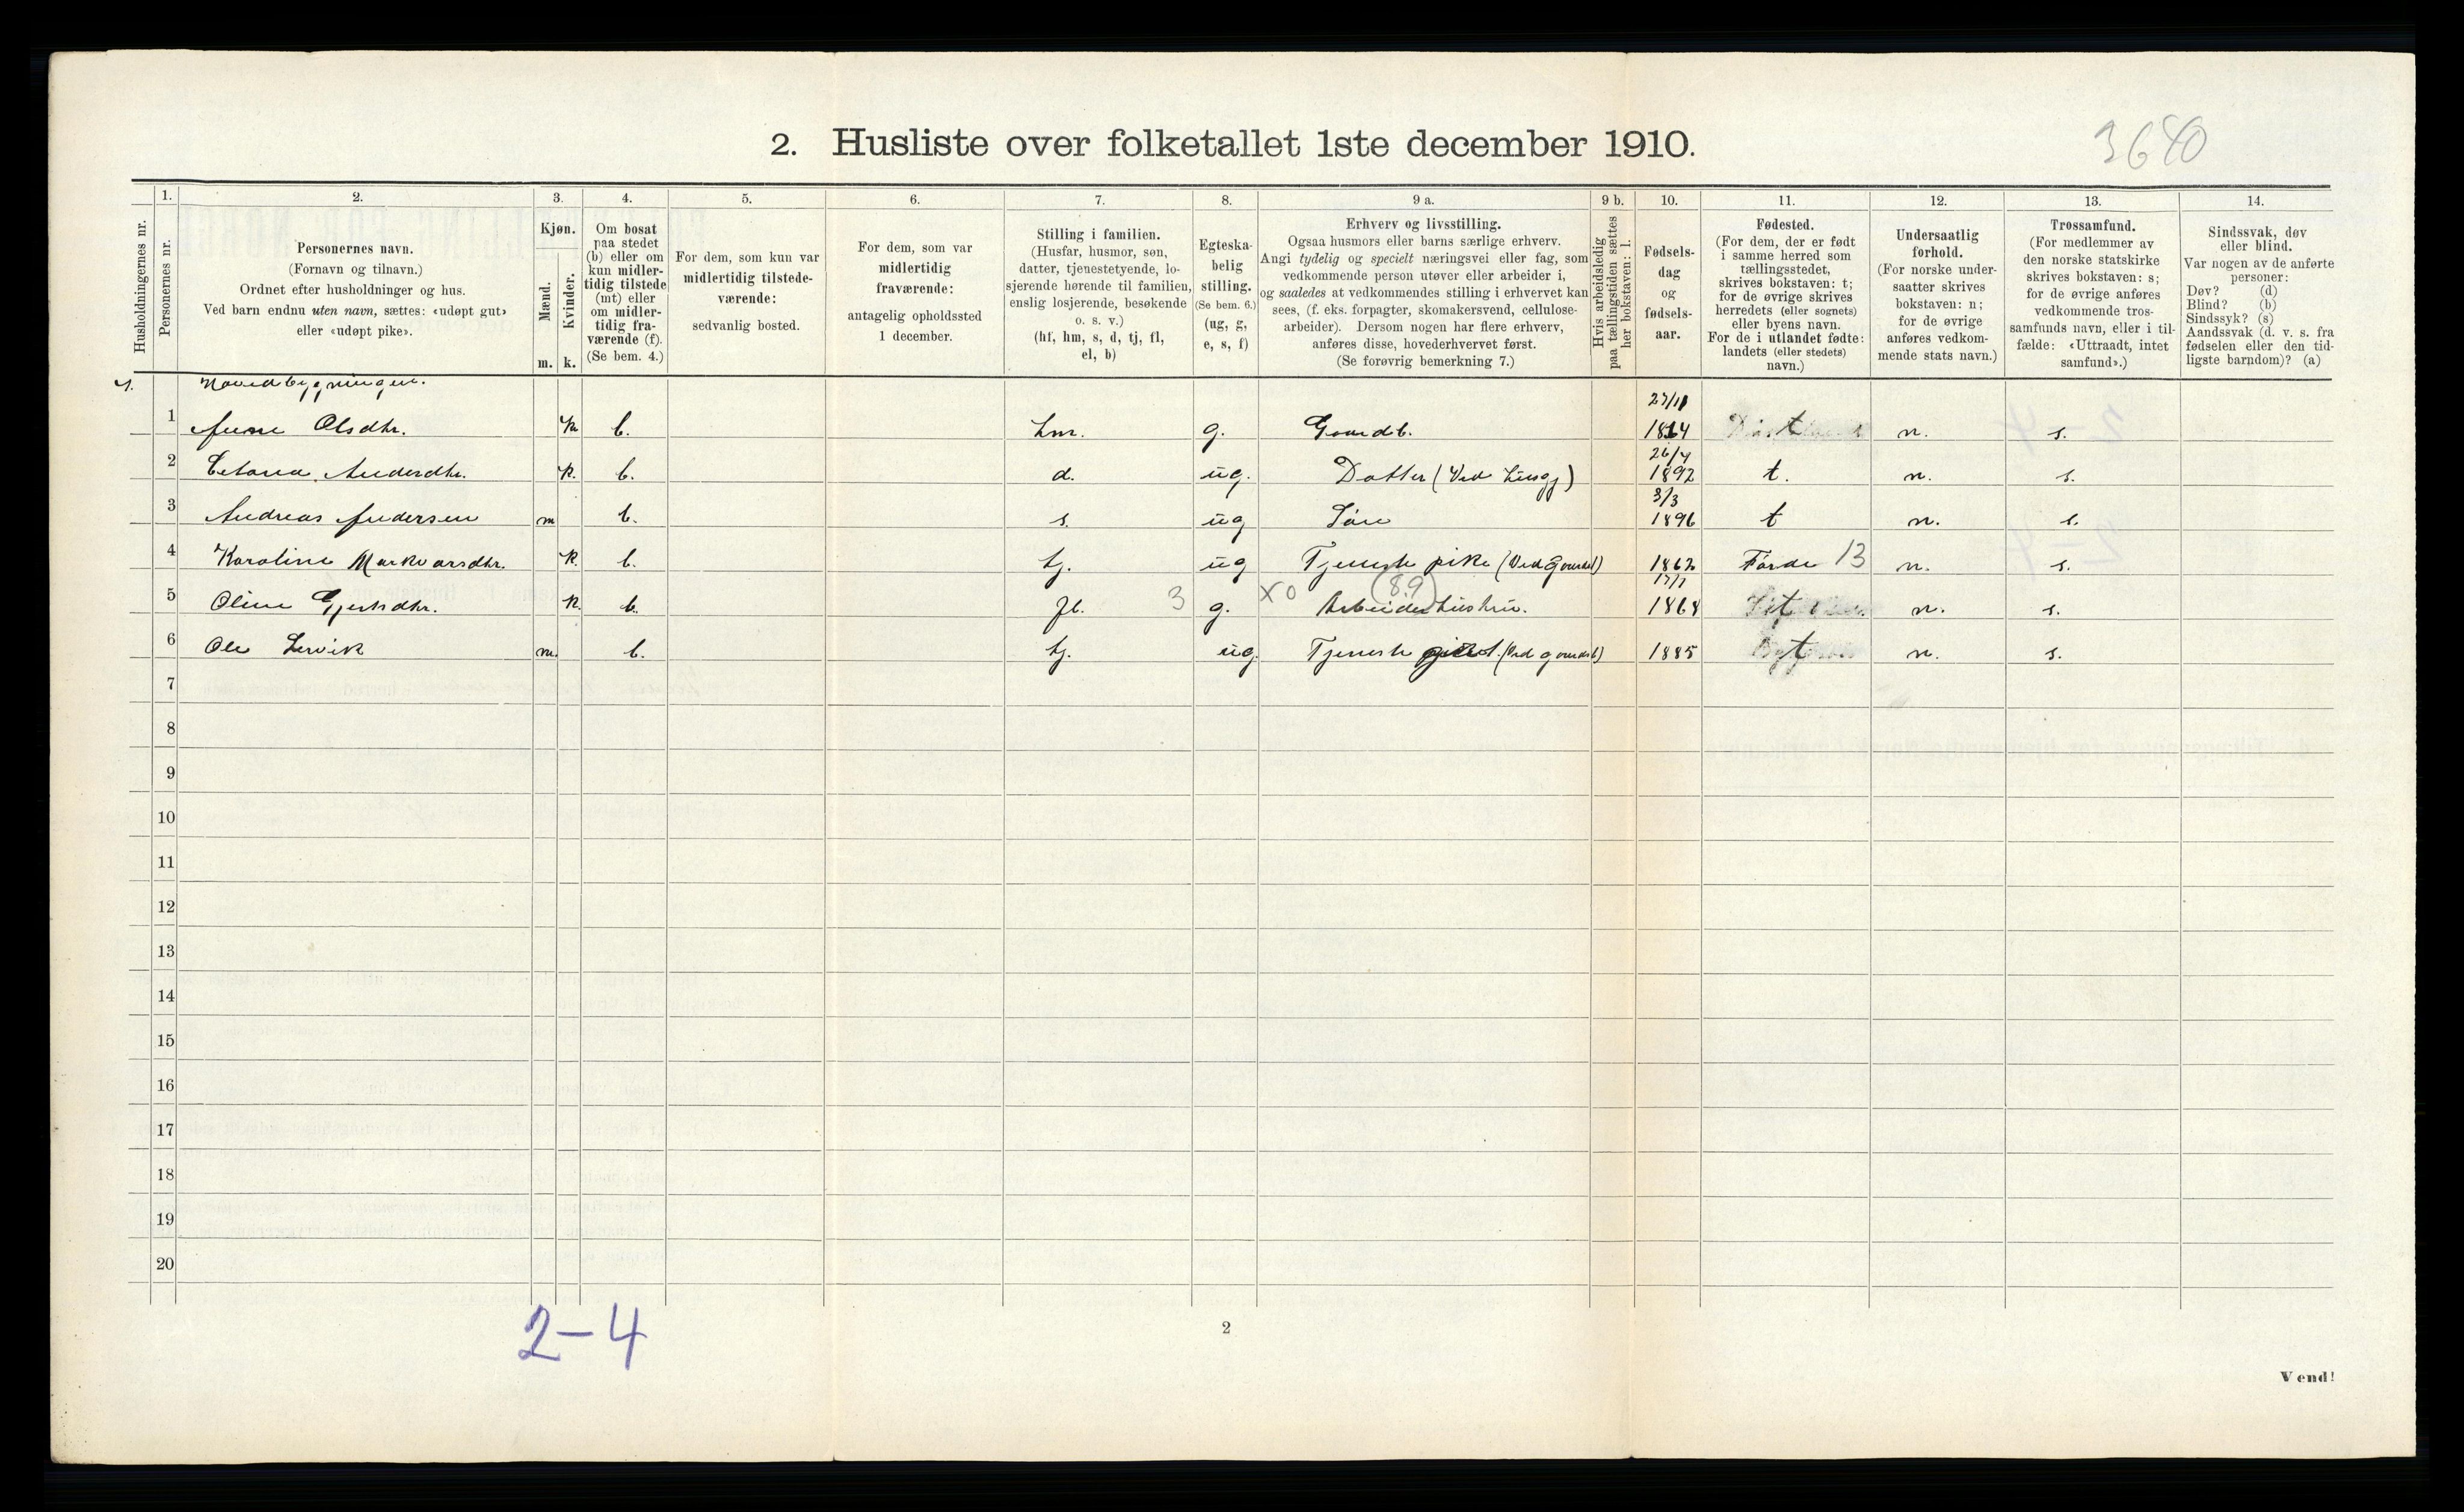 2. Husliste over folketallet 1ste december 1910.
3640
Husholdningernes nr.
1.
Personernes nr.
2.
Personernes navn.
(Fornavn og tilnavn.)
Ordnet efter husholdninger og hus.
Ved barn endnu uten navn, sættes: «udøpt gut»
eller «udøpt pike».
3.
Kjøn.
Mænd.
m.
Kvinder.
k.
4.
Om bosat
paa stedet
(b) eller om
kun midler-
tidig tilstede
(mt) eller
om midler-
tidig fra-
værende (f).
(Se bem. 4.)
5.
For dem, som kun var
midlertidig tilstede-
værende:
sedvanlig bosted.
6.
For dem, som var
midlertidig
fraværende:
antagelig opholdssted
1 december.
7.
Stilling i familien.
(Husfar, husmor, søn,
datter, tjenestetyende, lo-
sjerende hørende til familien,
enslig losjerende, besøkende
o. s. v.)
(hf, hm, s, d, tj, fl,
el, b)
8.
Egteska-
belig
stilling.
(Se bem. 6.)
(ug, g,
e, s, f)
9 a.
Erhverv og livsstilling.
Ogsaa husmors eller barns særlige erhverv.
Angi tydelig og specielt næringsvei eller fag, som
vedkommende person utøver eller arbeider i,
og saaledes at vedkommendes stilling i erhvervet kan
sees, (f. eks. forpagter, skomakersvend, cellulose-
arbeider). Dersom nogen har flere erhverv,
anføres disse, hovederhvervet først.
(Se forøvrig bemerkning 7.)
9 b.
Hvis arbeidsledig
paa tællingstiden sættes
her bokstaven: l.
10.
Fødsels-
dag
og
fødsels-
aar.
11.
Fødested.
(For dem, der er født
i samme herred som
tællingsstedet,
skrives bokstaven: t;
for de øvrige skrives
herredets (eller sognets)
eller byens navn.
For de i utlandet fødte:
landets (eller stedets)
navn.)
12.
Undersaatlig
forhold.
(For norske under-
saatter skrives
bokstaven: n;
for de øvrige
anføres vedkom-
mende stats navn.)
13.
Trossamfund.
(For medlemmer av
den norske statskirke
skrives bokstaven: s;
for de øvrige anføres
vedkommende tros-
samfunds navn, eller i til-
fælde: «Uttraadt, intet
samfund».)
14.
Sindssvak, døv
eller blind.
Var nogen av de anførte
personer:
Døv? (d)
Blind? (b)
Sindssyk? (s)
Aandssvak (d. v. s. fra
fødselen eller den tid-
ligste barndom)? (a)
1. Hovedbygningen.
1 Anne Olsdtr. k b. hm. g. Gaardb. 27/11 t n. s.
2 Anderdtr. k. b. d. ug. Datter (Ved husgj) 26/4 1892 t. n. s.
3 Andreas Andersen m b. s. ug Søn 3/3 1896 t n. s.
4 Karoline Markvarsdtr. k. b. tj. ug Tjeneste pike (Ved gaardsb) 1862 Førde 13 n. s.
5 Oline Gjertsdtr. k. b. fl. 3 g. x0 (8.9) Arbeiderhustru. 17/7 1868 t n. s.
6 Ole Lervik m. b. tj. ug. Tjeneste (Ved gaardsb) 1885 t n. s.
7
8
9
10
11
12
13
14
15
16
17
18
19
20
2-4
2
Vend!